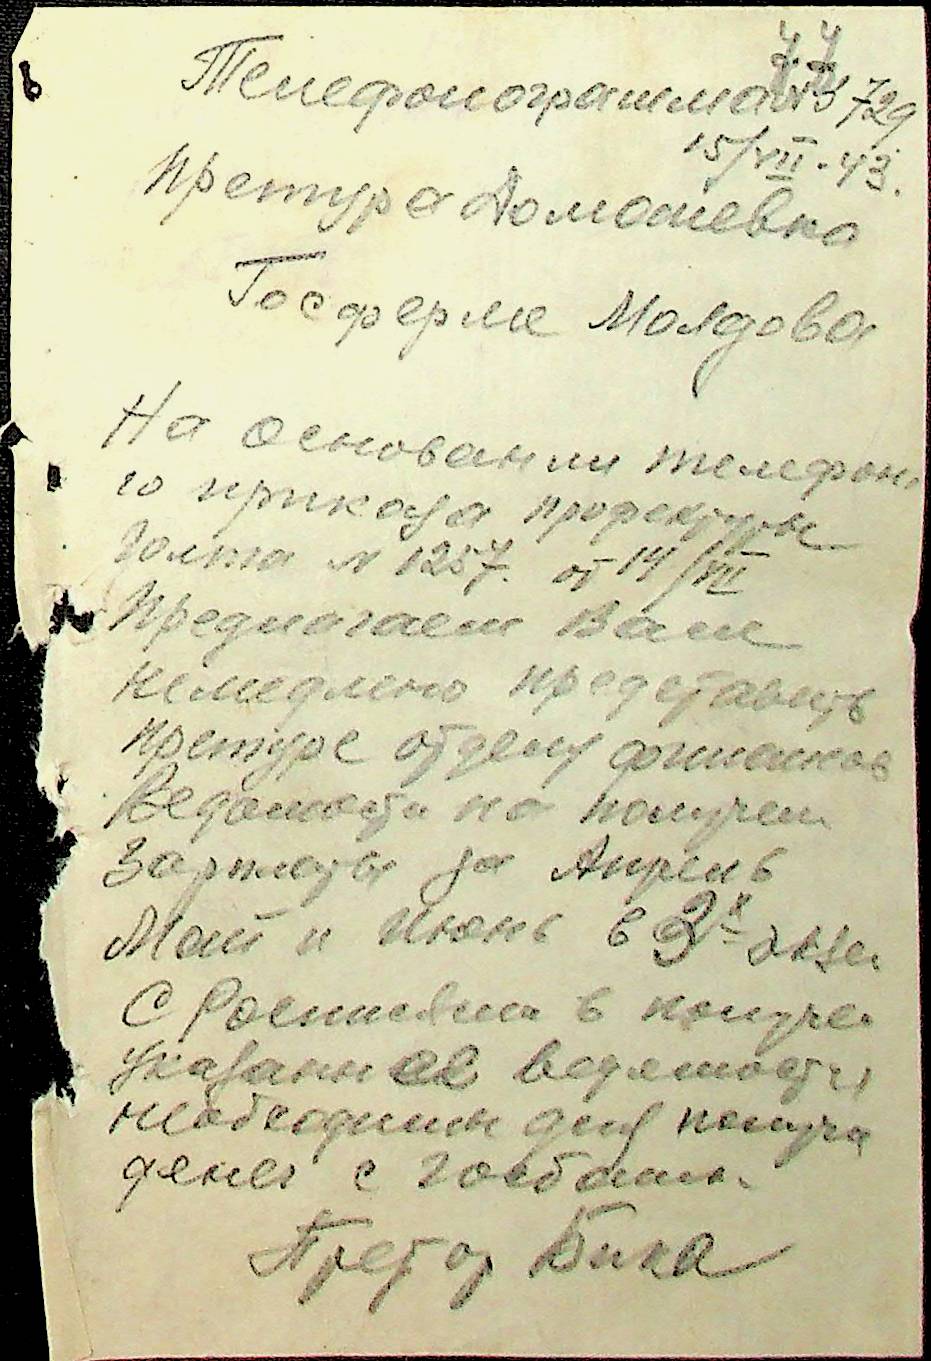 Телефонограмма № 729
15/VII-43.
Претура Домашевка
Госферме Молдова
На основании телефон
го приказа профектуры
Голта N 1257. от 14/VII
Предлагаем Вам
немедлено представить
претуре отделу финансов
Ведомости на получен
Зарплаты за Апрель
Май и Июнь в 3х экзе
С Росписями в получе
указанные ведемости
необходимы для получе
денег с Госбанк.
Претор Бика